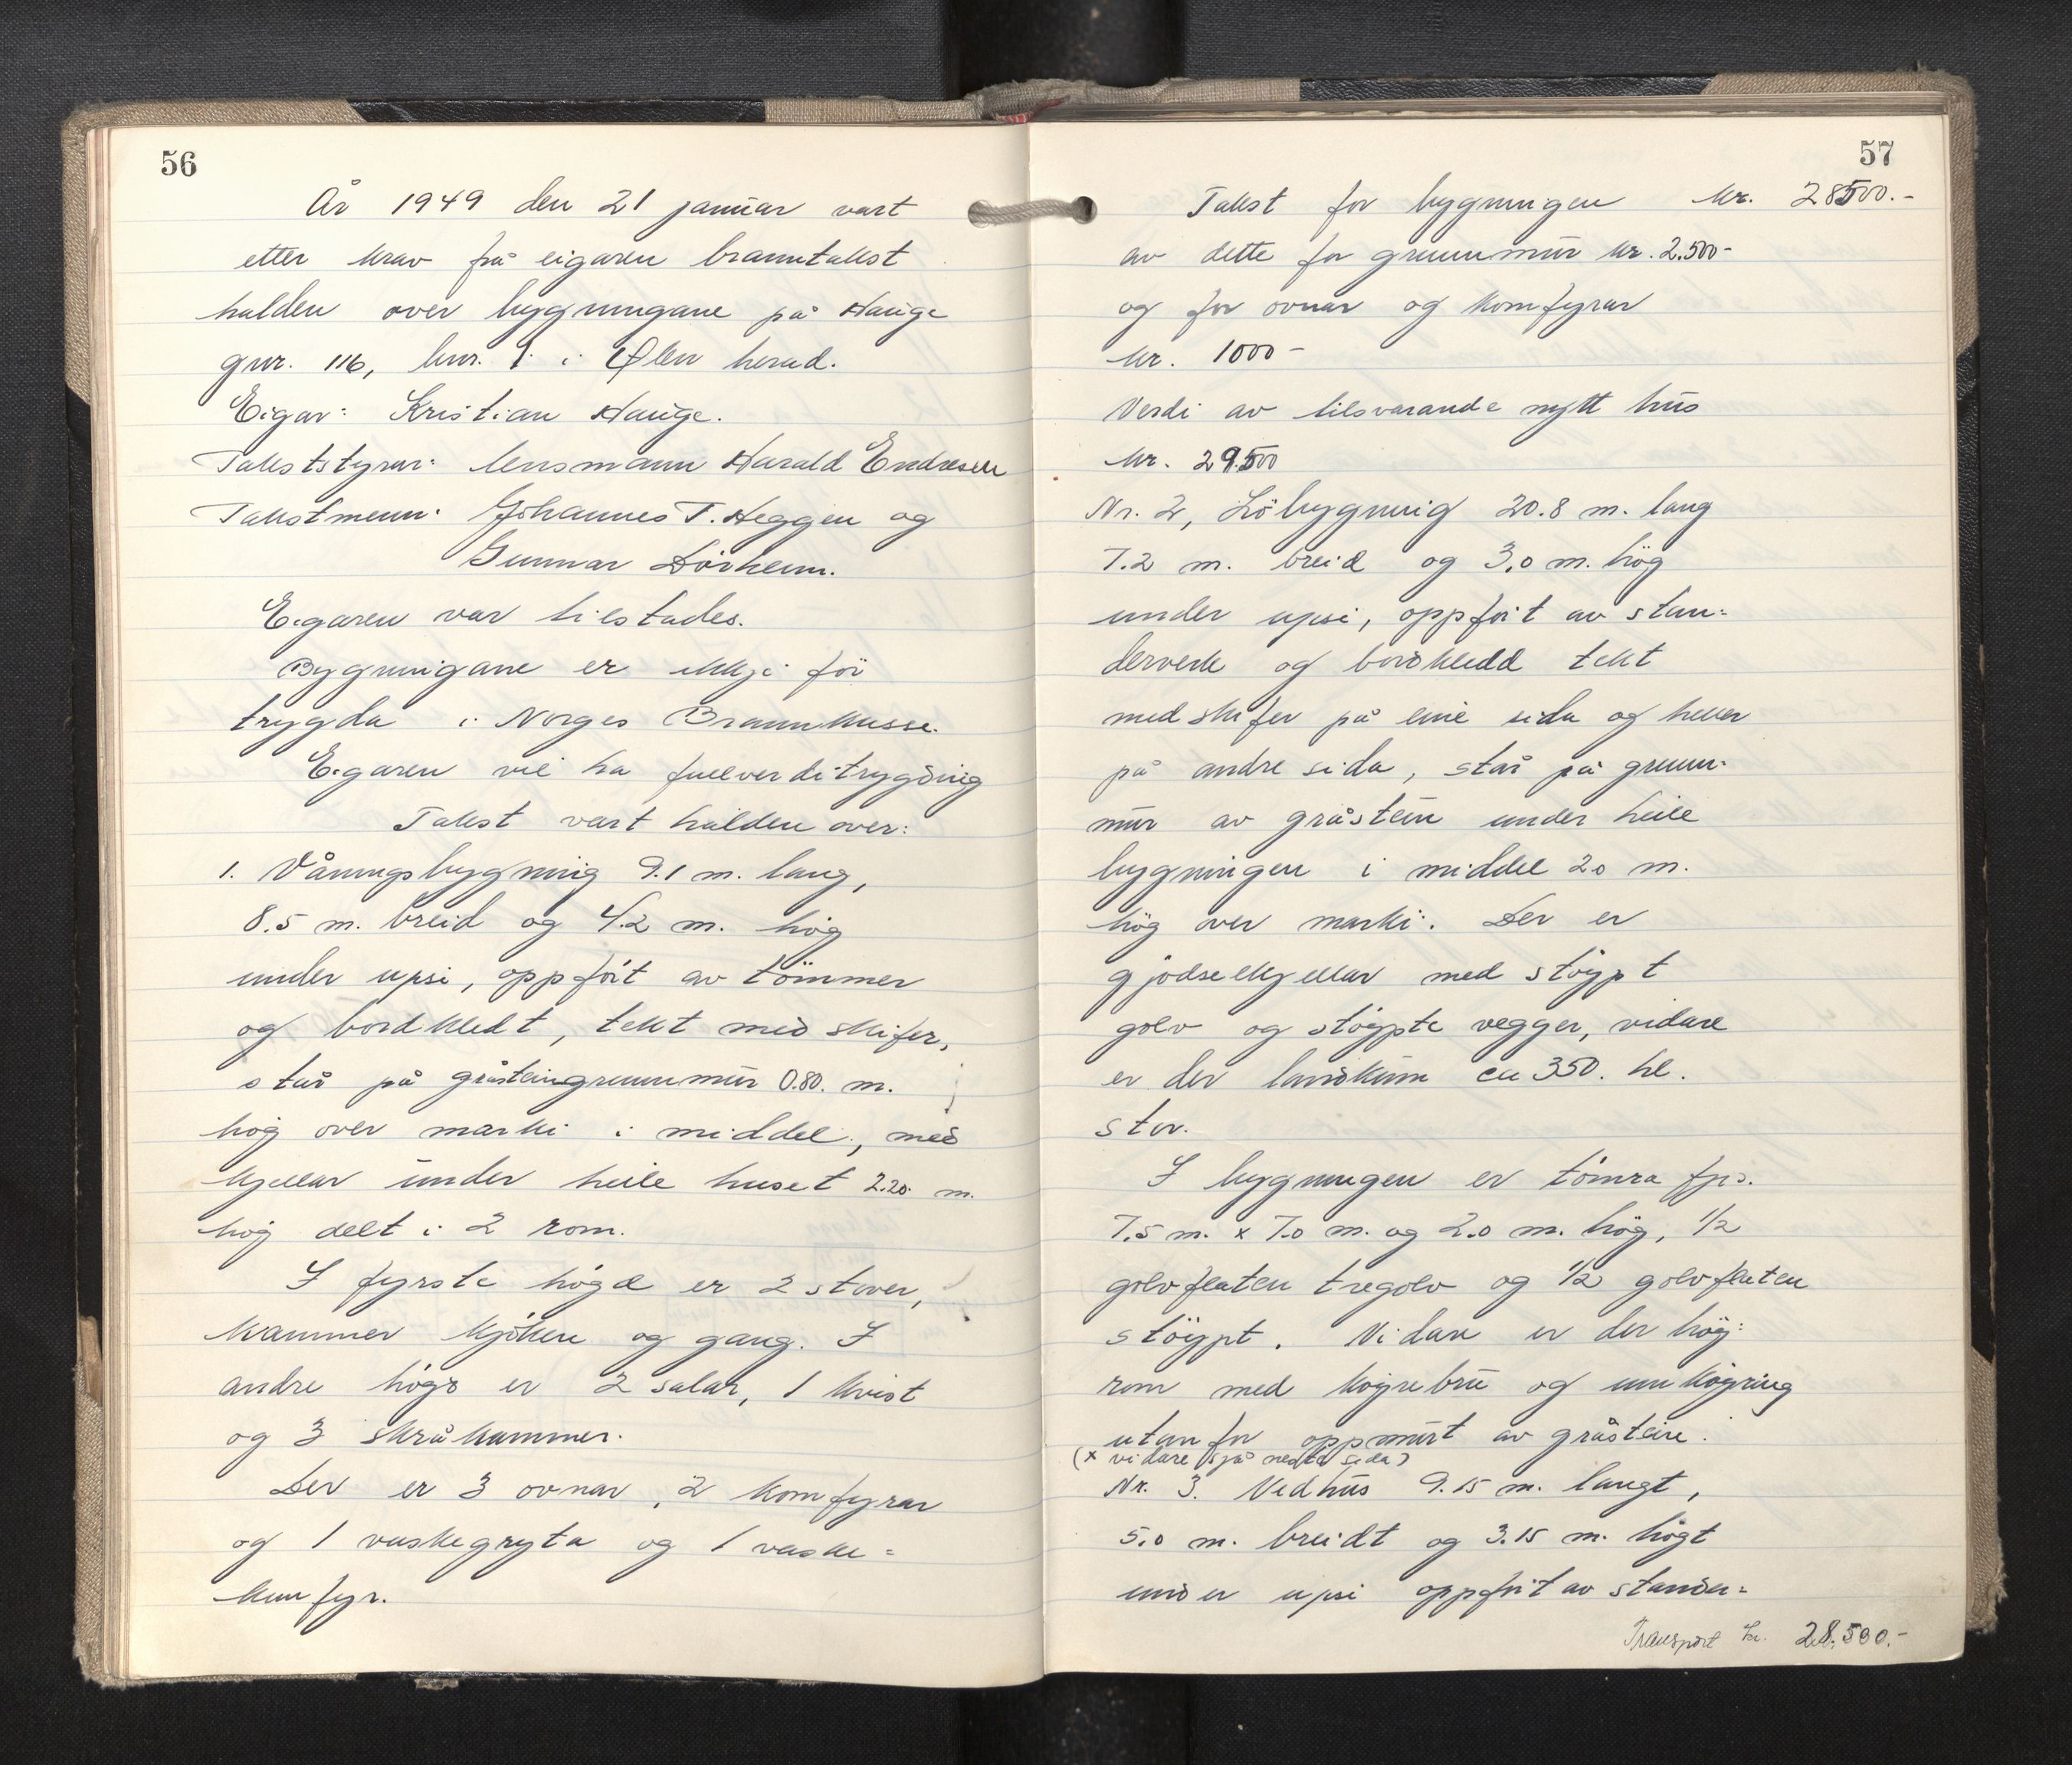 56
År 1949 den 21 januar vart
etter krav frå eigaren branntakst
halden over bygningane på Hauge
gnr. 116, bnr. 1 i Ølen herad.
Eigar: Kristian Hauge.
Takststyrar: lensmann Harald Endresen
Takstmenn: Johannes T. Heggen og
Gunnar Dörheim.
Eigaren var tilstades.
Bygningane er ikkje för
trygda i Norges Brannkasse.
Eigaren vil ha fullverditrygding
Takst vart halden over:
1. Våningsbygning 9.1 m. lang,
8.5 m. breid og 4.2 m. hög
under upsi, oppfört av tömmer
og bordkledt, tekt med skifer,
står på gråsteingrunnmur 0.80. m.
hög over marki i middel, med
kjellar under heile huset 2.20 m.
hög delt i 2 rom.
I fyrste högd er 2 stover,
kammer kjöken og gang. I
andre högd er 2 salar, 1 kvist
og 3 skråkammer.
Der er 3 ovnar, 2 komfyrar
og 1 vaskegryta og 1 vaske=
kumfyr.
57
Takst for bygningen kr. 28500.-
av dette for grunnmur kr. 2.500-
og for ovnar og komfyrar
kr. 1000-
Verdi av tilsvarande nytt hus
kr. 29.500
Nr. 2, Löbygning 20.8 m. lang
7.2 m. breid og 3.0 m. hög
under upsi, oppfört av stan=
derverk og bordkledd tekt
med skifer på eine sida og heller
på andre sida, står på grunn=
mur av gråstein under heile
bygningen i middel 2.0 m.
hög over marki. Der er
gjödselkjellar med stöypt
golv og stöypte vegger, vidare
er der landkum ca 350. hl.
stor.
I bygningen er tömra fjös.
7.5 m. x 7.0 m. og 2.0 m. hög, 1/2
golvflaten tregolv og 1/2 golvflaten
stöypt. Vidare er der höy=
rom med köyrebru og innköyring
utanfor oppmurt av gråstein.
(x vidare sjå neste sida)
Nr. 3. Vedhus 9.15 m. langt,
5.0 m. breidt og 3.15 m. högt
under upsi oppfört av stander=
Transport kr. 28.500.-